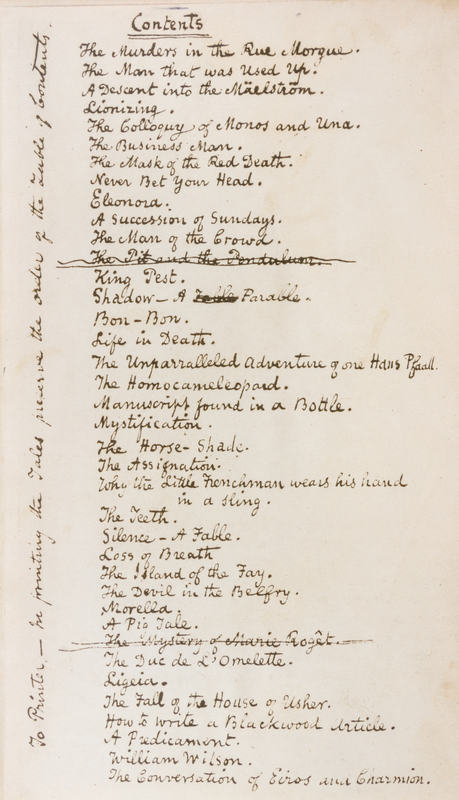 Contents
The Murders in the Rue Morgue.
The Man that was Used Up.
A Descent into the Mäelström.
Lionizing.
The Colloquy of Monos and Una.
The Business Man.
The Mask of the Red Death.
Never Bet Your Head.
Eleonora.
A Succession of Sundays.
The Man of the Crowd.
The Pit and the Pendulum.
King Pest.
Shadow — A Fable Parable.
Bon-Bon.
Life in Death.
The Unparralleled Adventure of one Hans Pfaall.
The Homocameleopard.
Manuscript found in a Bottle.
Mystification.
The Horse-Shade.
The Assignation.
Why the Little Frenchman wears his hand
in a sling.
The Teeth.
Silence — A Fable.
Loss of Breath
The Island of the Fay.
The Devil in the Belfry.
Morella.
A Pig Tale.
The Mystery of Marie Rogêt.
The Duc de L'Omelette.
Ligeia.
The Fall of the House of Usher.
How to write a Blackwood Article.
A Predicament.
William Wilson.
The Conversation of Eiros and Charmion.
To Printer, — In printing the Tales preserve the order of the Table of Contents.